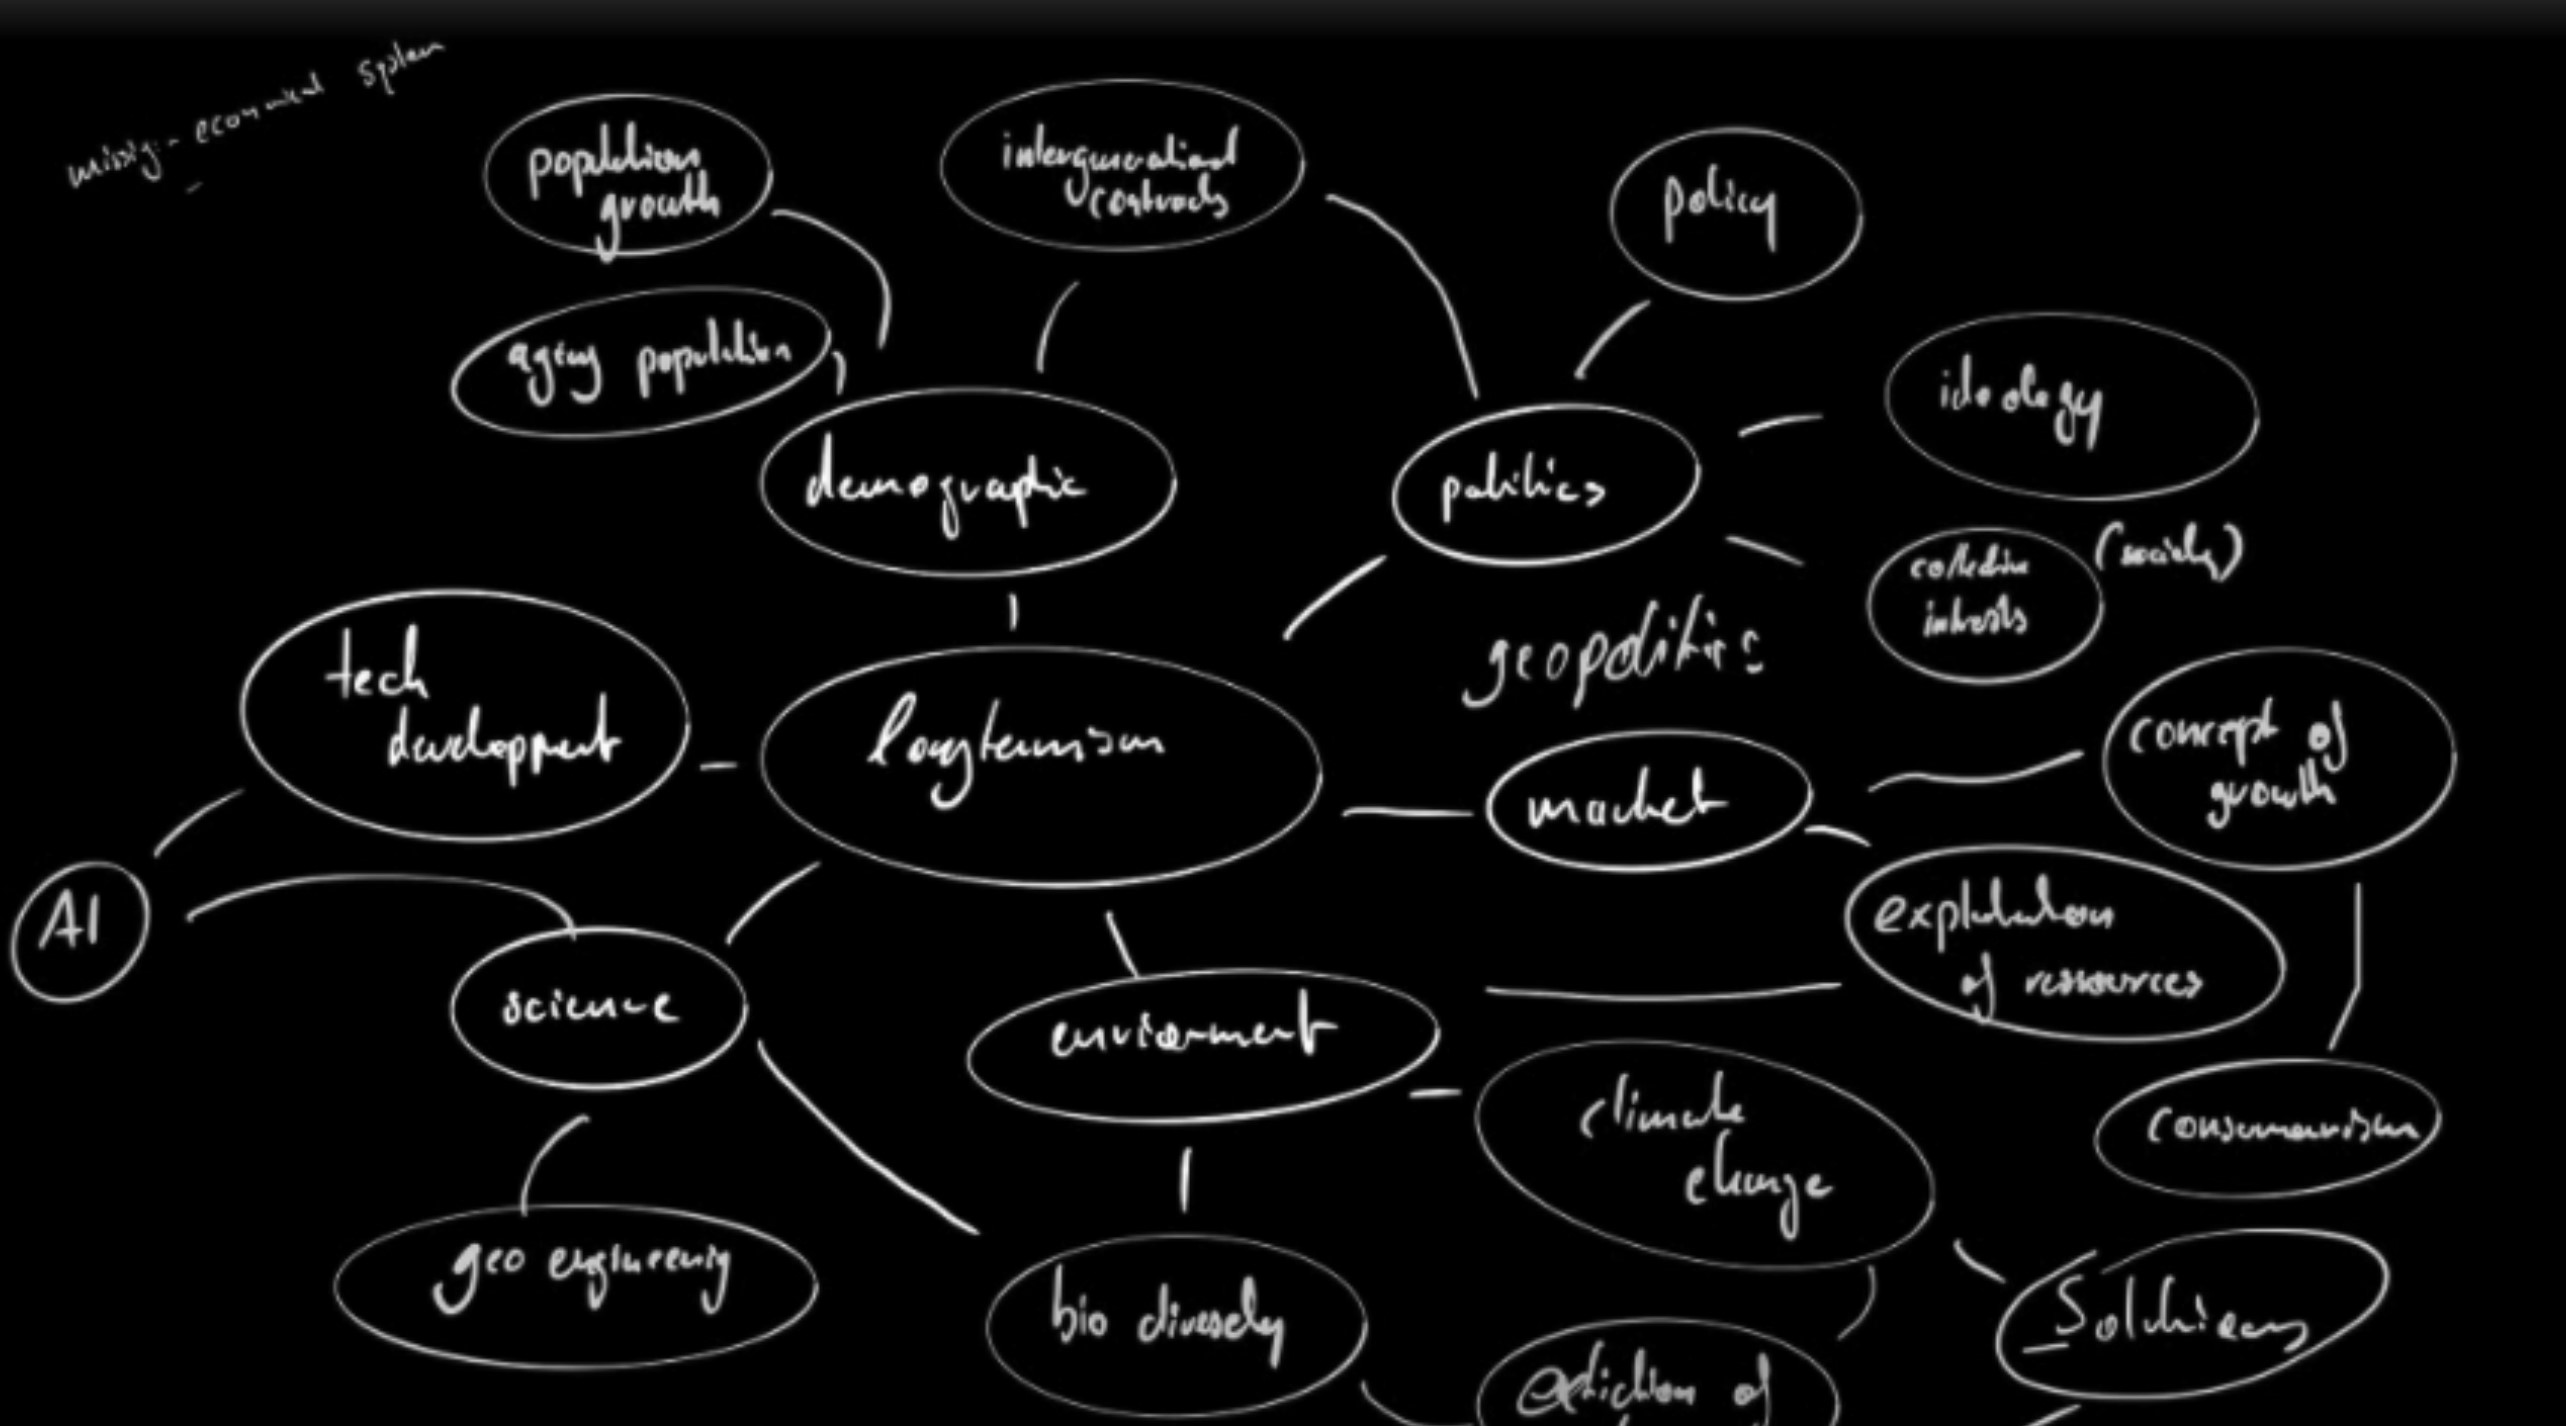 missig:- economical system
population
growth
intergenerational
contracts
policy
aging population
ideology
demographic
politics
(society)
collective
intrests
geopolitics
tech
development
longtermism
market
concept of
growth
AI
explotation
of ressources
science
enviornment
climate
change
consumerism
geo engineering
bio diversety
Solutions
extiction of